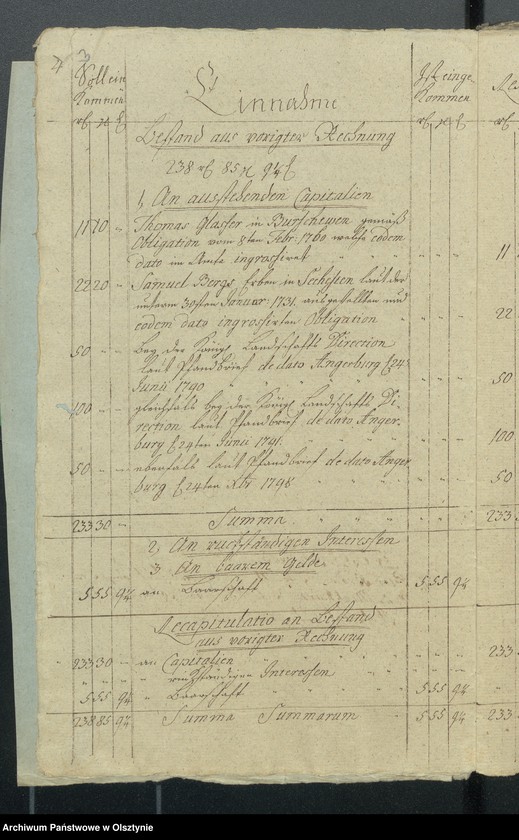 4
Soll ein
kommen
Einnahme
Ist einge
kommen
rl
Bestand aus voriger Rechnung
238 85 9¼
1, An ausstehenden Capitalien
11 70 Thomas Glasser in Burschewen gemäß
Obligation vom 8ten Febr: 1760 welche eodem
dato im Amte ingrossiret
11
22 20 Samuel Bergs Erben in Seehesten laut der
unterm 30sten Januar: 1731 ausgestellten und
eodem dato ingrossirten Obligation
22
50 Bey der Königl Landschafts Direction
laut Pfandbrief de dato Angerburg d 24
Junii 1790
50
100 gleichfals bey der Königl Landschafts Di-
rection laut Pfandbrief de dato Anger-
burg d 24ten Junii 1791.
100
50 ebenfals laut Pfandbrief de dato Anger
burg d 24ten Xbr 1798
50
233 30 Summa
233
2, An rückständigen Interessen
3, An baarem Gelde
5 55 9¼ an Baarschaft 5 55 9¼
Recapitulatio an Bestand
aus voriger Rechnung
233 30 an Capitalien
233
" rückständigen Interessen
5 55 9¼ " Baarschaft 5 55 9¼
238 85 9¼ Summa Summarum 5 55 9¼ 233
Archiwum Państwowe w Olsztynie